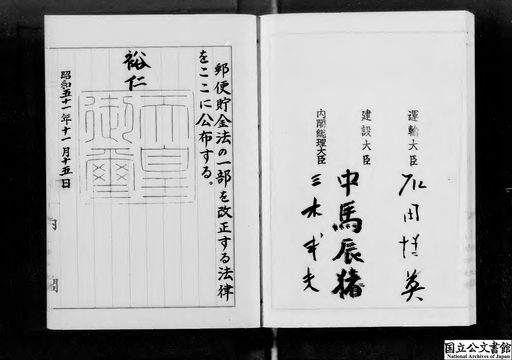 運輸大臣 石田博英
建設大臣 中馬辰猪
内閣総理大臣 三木武夫
郵便貯金法の一部を改正する法律
をここに公布する。
裕仁
天皇御璽
昭和五十一年十一月十五日
内閣
国立公文書館
National Archives of Japan